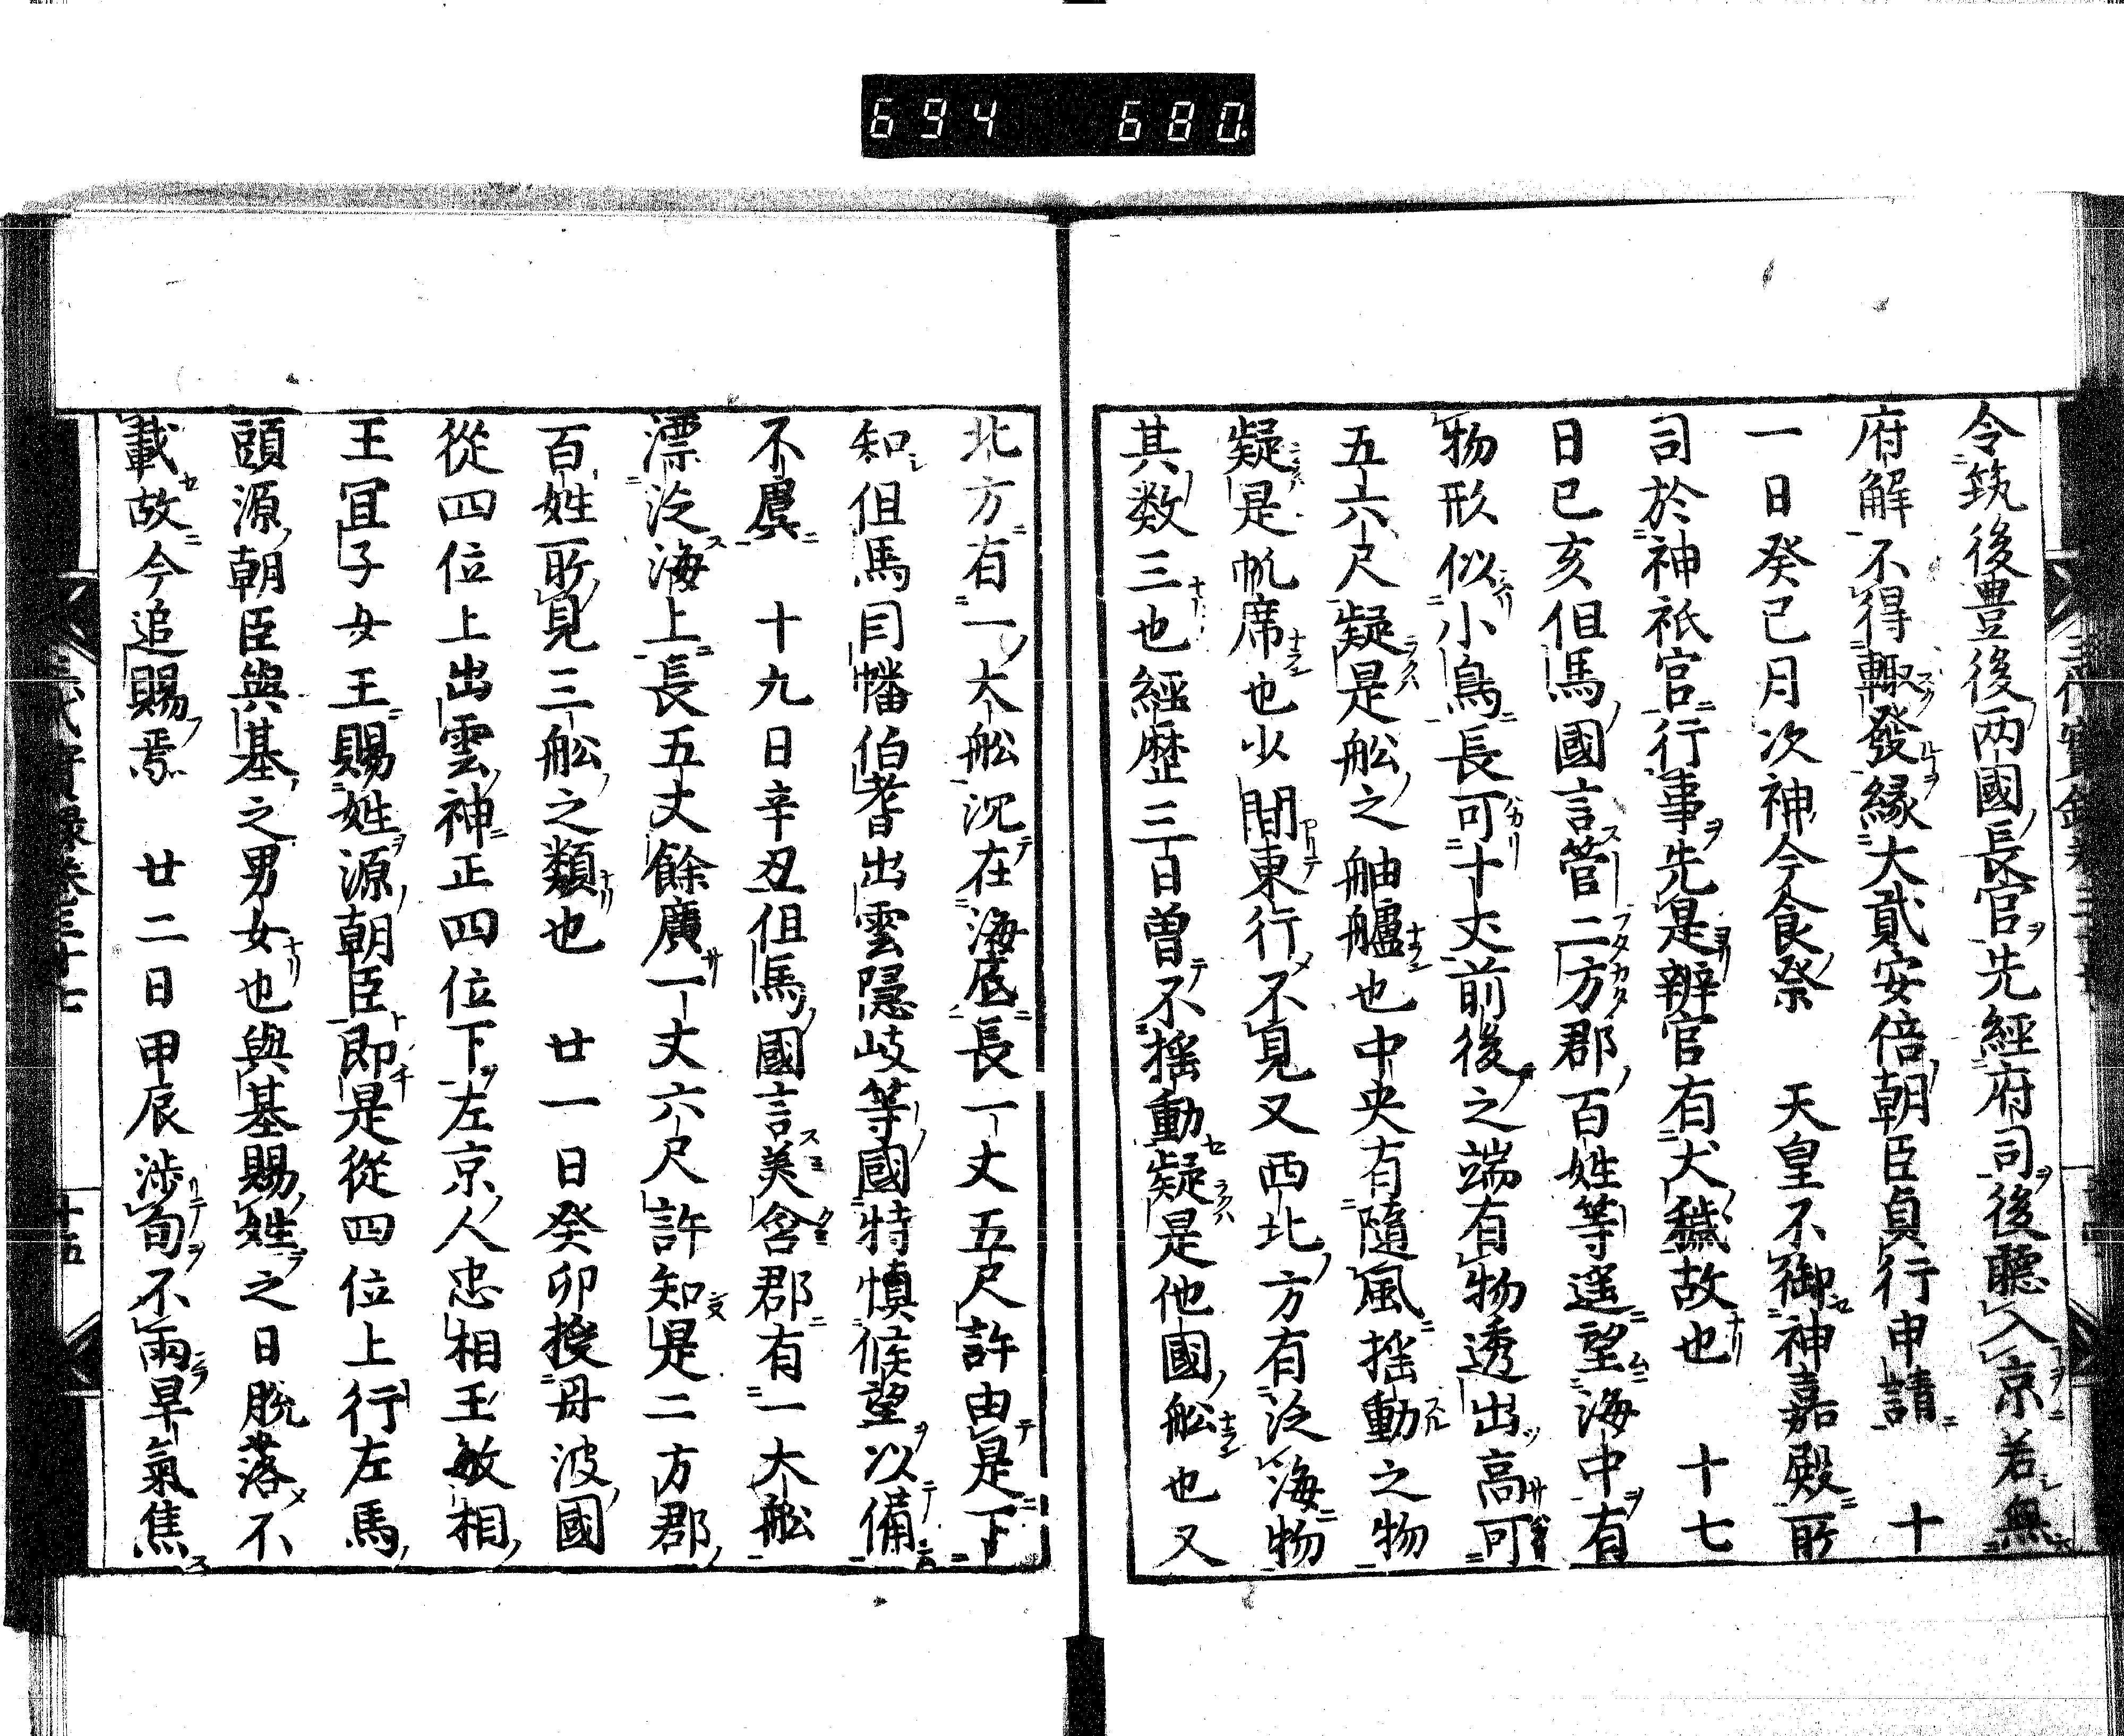 694 680.
令筑後豊後两國長官先經府司後聽入京若無
府解不得輙發緣大貳安倍朝臣貞行申請　十
一日癸巳月次神今食祭　天皇不御神嘉殿所
司於神祇官行事先是辨官有犬穢故也　十七
日已亥但馬國言管二方郡百姓等遥望海中有
物形似小鳥長可十丈前後之端有物透出高可
五六尺疑是舩之舳艫也中央有隨風揺動之物
疑是帆席也少間東行不見又西北方有泛海物
其数三也經歴三百曽不揺動疑是他國舩也又
北方有一大舩沉在海底長一丈五尺許由是下
知但馬因幡伯耆出雲隠岐等國特慎候望以備
不虞　十九日辛丑但馬國言美含郡有一大舩
漂泛海上長五丈餘廣一丈六尺許知是二方郡
百姓所見三舩之類也　廿一日癸卯授丹波國
從四位上出雲神正四位下左京人忠相王敏相
王冝子女王賜姓源朝臣即是從四位上行左馬
頭源朝臣與基之男女也與基賜姓之日脫落不
載故今追賜焉　廿二日甲辰涉旬不雨旱氣焦
十五